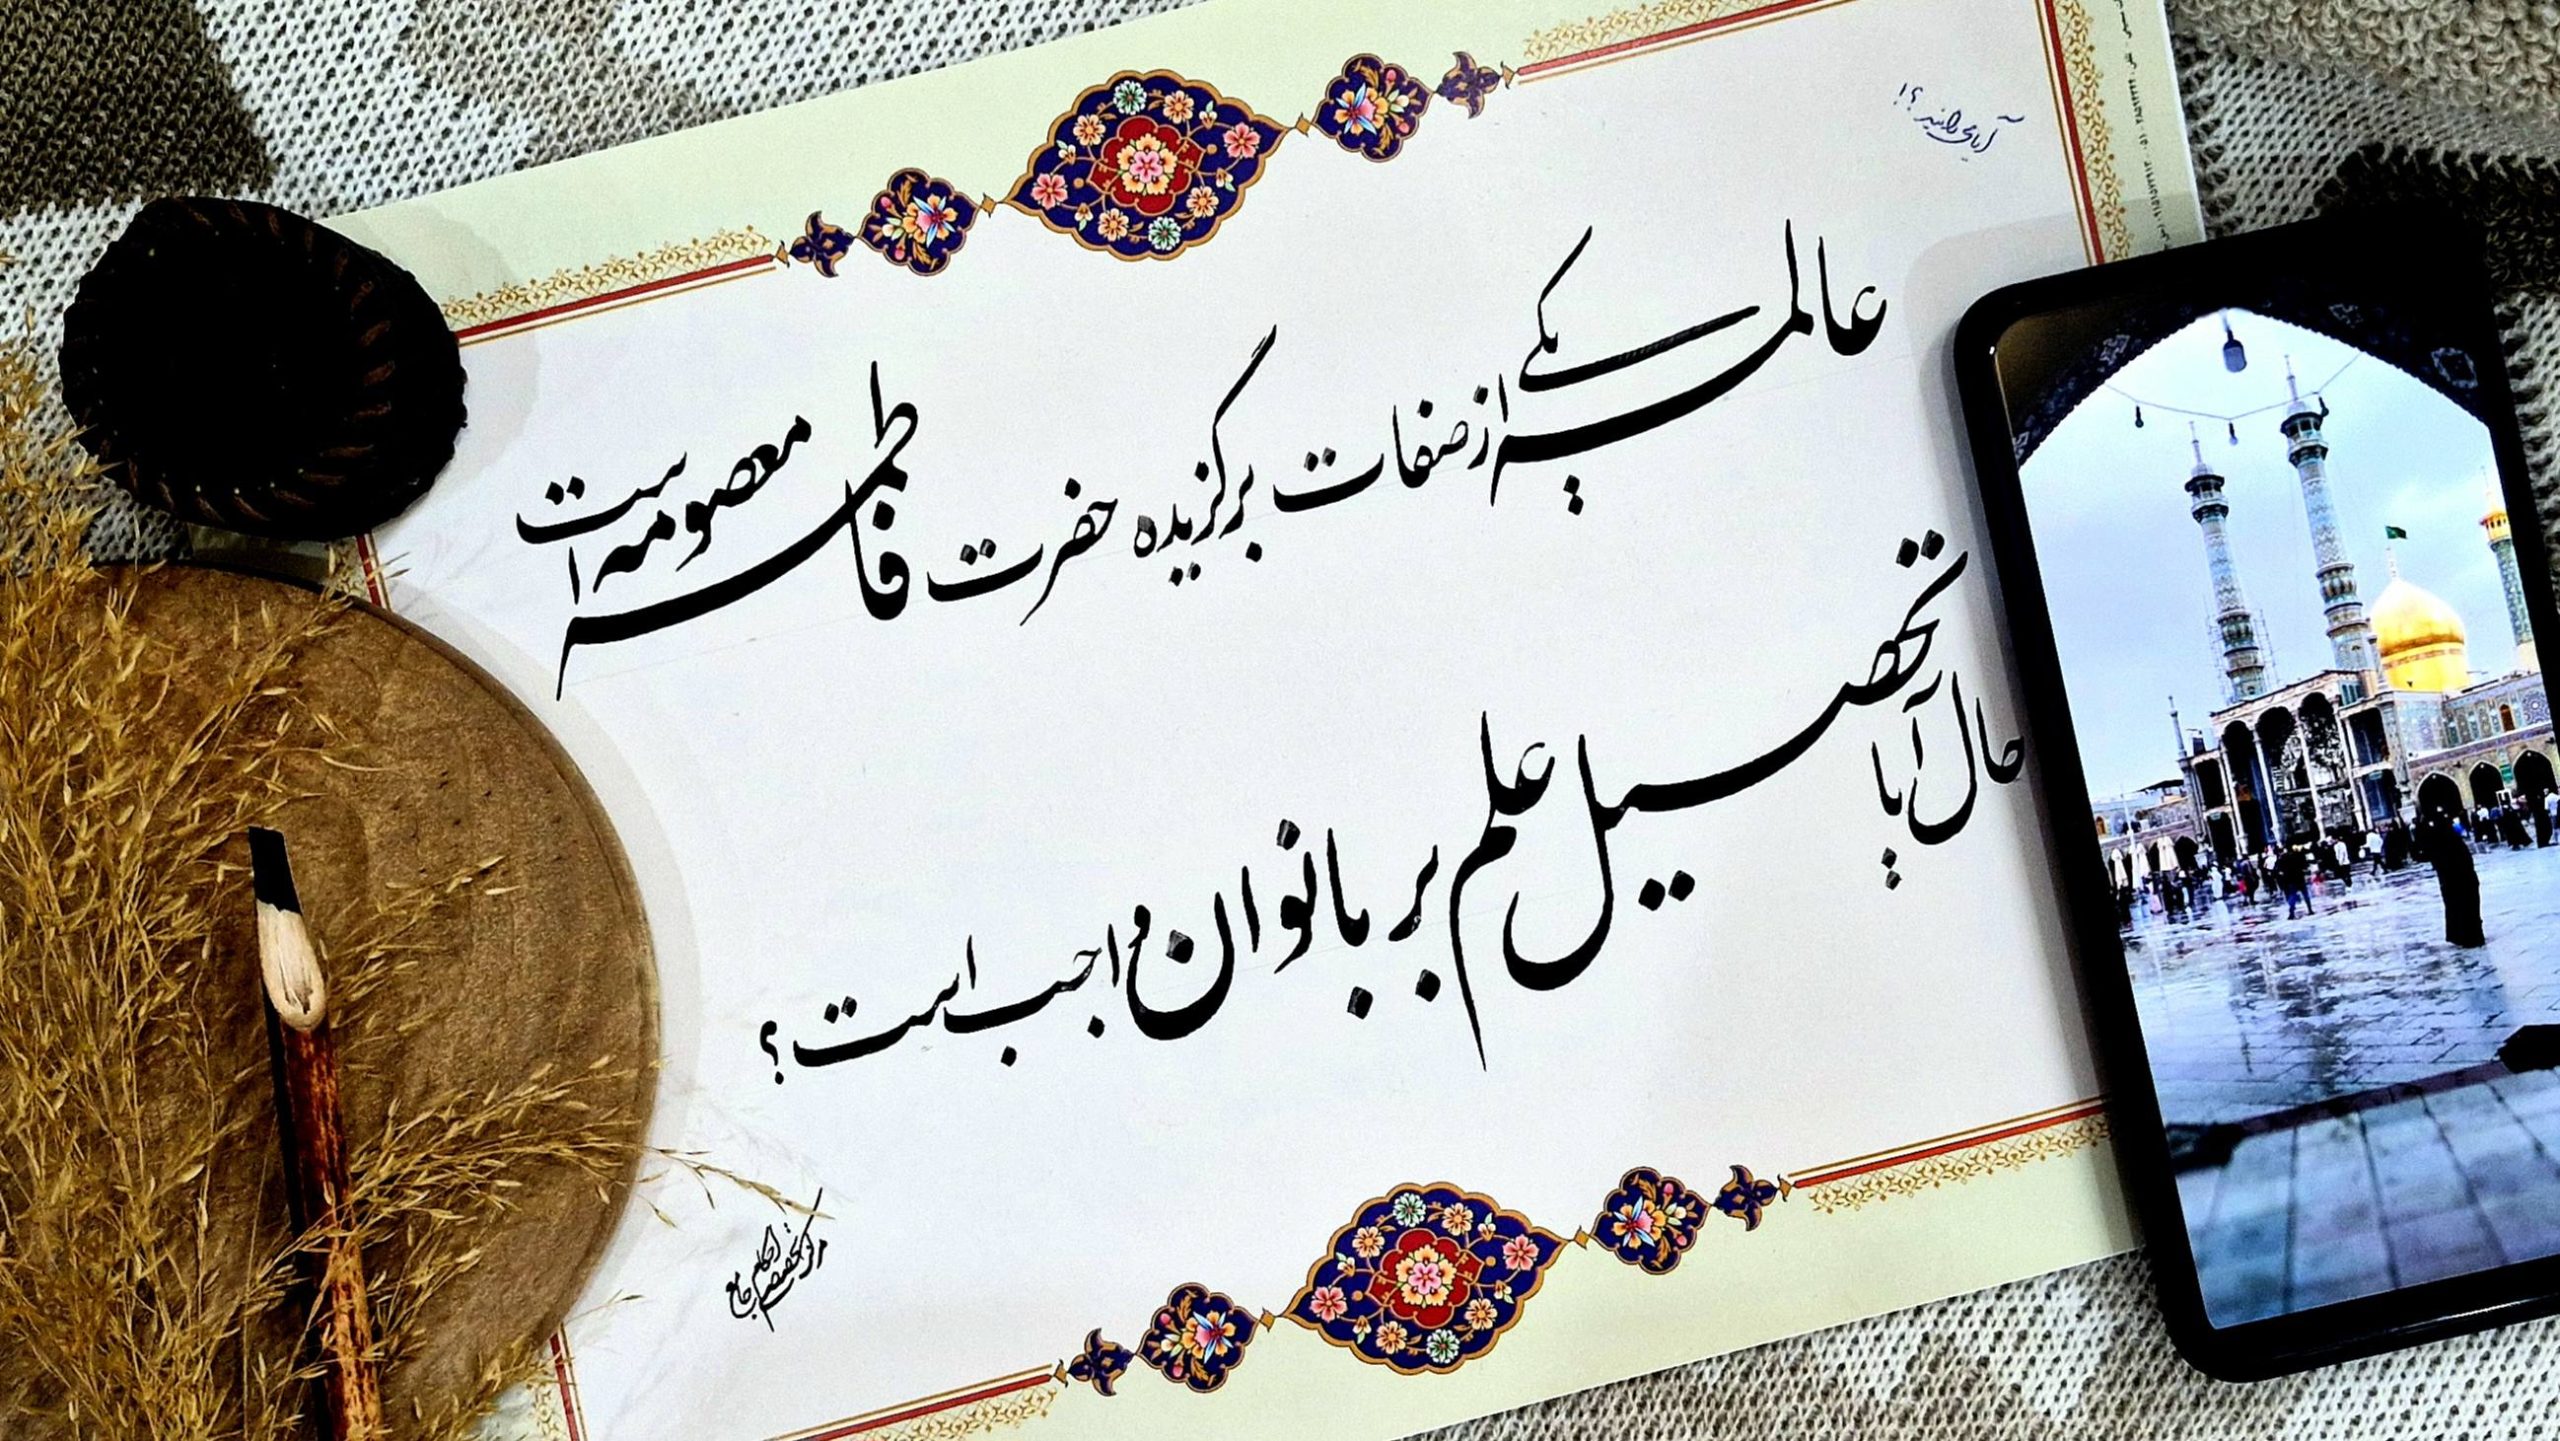 آیا می‌دانید؟!
عالمه یکی از صفات برگزیده حضرت فاطمه معصومه است
حال آیا تحصیل علم بر بانوان واجب است؟
مرکز تخصصی احکام جامع